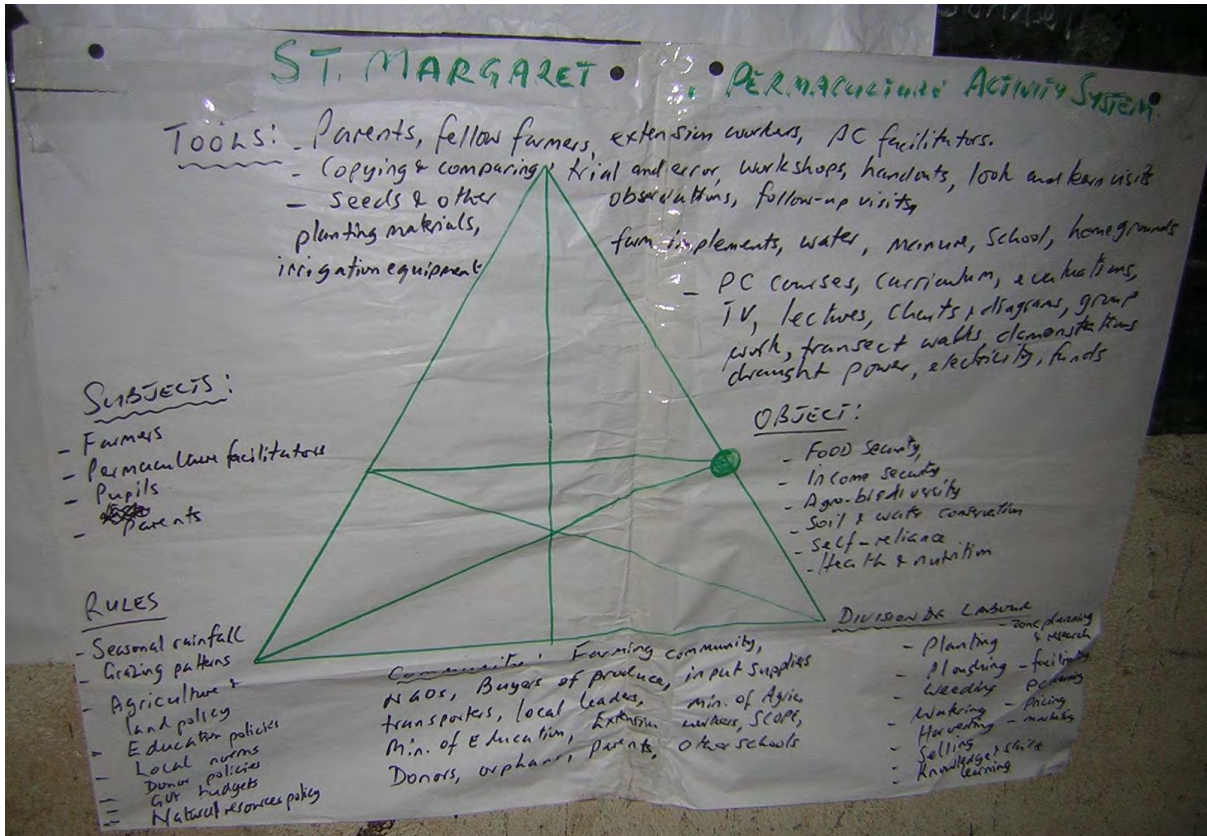 ST. MARGARET . PERMACULTURE ACTIVITY SYSTEM.
TOOLS: - Parents, fellow farmers, extension workers, PC facilitators.
- Copying & comparing, trial and error, workshops, handouts, look and learn visits
observations, follow-up visits,
- Seeds & other
planting materials,
irrigation equipment
farm implements, water, manure, School, homegrounds
- PC courses, curriculum, evaluations,
TV, lectures, charts & diagrams, group
work, transect walks, demonstrations
draught power, electricity, funds
SUBJECTS:
- Farmers
- Permaculture facilitators
- Pupils
- Parents
OBJECT:
- FOOD Security,
- Income security
- Agro-biodiversity
- Soil & water conservation
- Self-reliance
- Health & nutrition
RULES
- Seasonal rainfall
- Grazing patterns
- Agriculture &
land policy
- Education policies
- Local norms
- Donor policies
- Gvt budgets
- Natural resources policy
Community: Farming community,
NGOs, Buyers of produce, input supplies
transporters, local leaders, min. of Agric
Min. of Education, Extension workers, SCOPE,
Donors, orphans, parents, other schools
DIVISION OF LABOUR
- Planting
- Ploughing
- Weeding
- Watering
- Harvesting
- Selling
- Knowledge & skills
learning
- zone planning
& research
- facilitating
PC
- pricing
- marketing